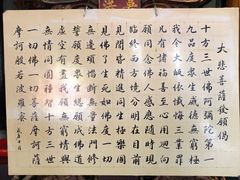 大慈菩薩發願偈
十方三世佛阿彌陀第一
九品度眾生威德無窮極
我今大皈依懺悔三業罪
凡有諸福善至心用回向
願同念佛人感應隨時現
臨終西方境分明在目前
見聞皆精進同生極樂國
見佛了生死如佛度一切
無邊煩惱斷無量法門修
誓願度眾生總願成佛道
虛空有盡我願無窮情與
無情同圓種智十方三世
一切佛一切菩薩摩訶薩
摩訶般若波羅蜜